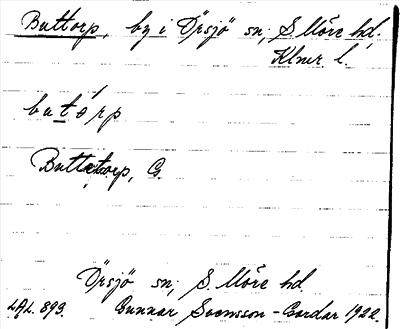 Buttorp, by i Örsjö sn, S. Möre hd,
Klmr l.
butórp
Buttetorp, G.
Örsjö sn, S. Möre hd.
LAL. 893. Gunnar Svensson-Gordar 1922